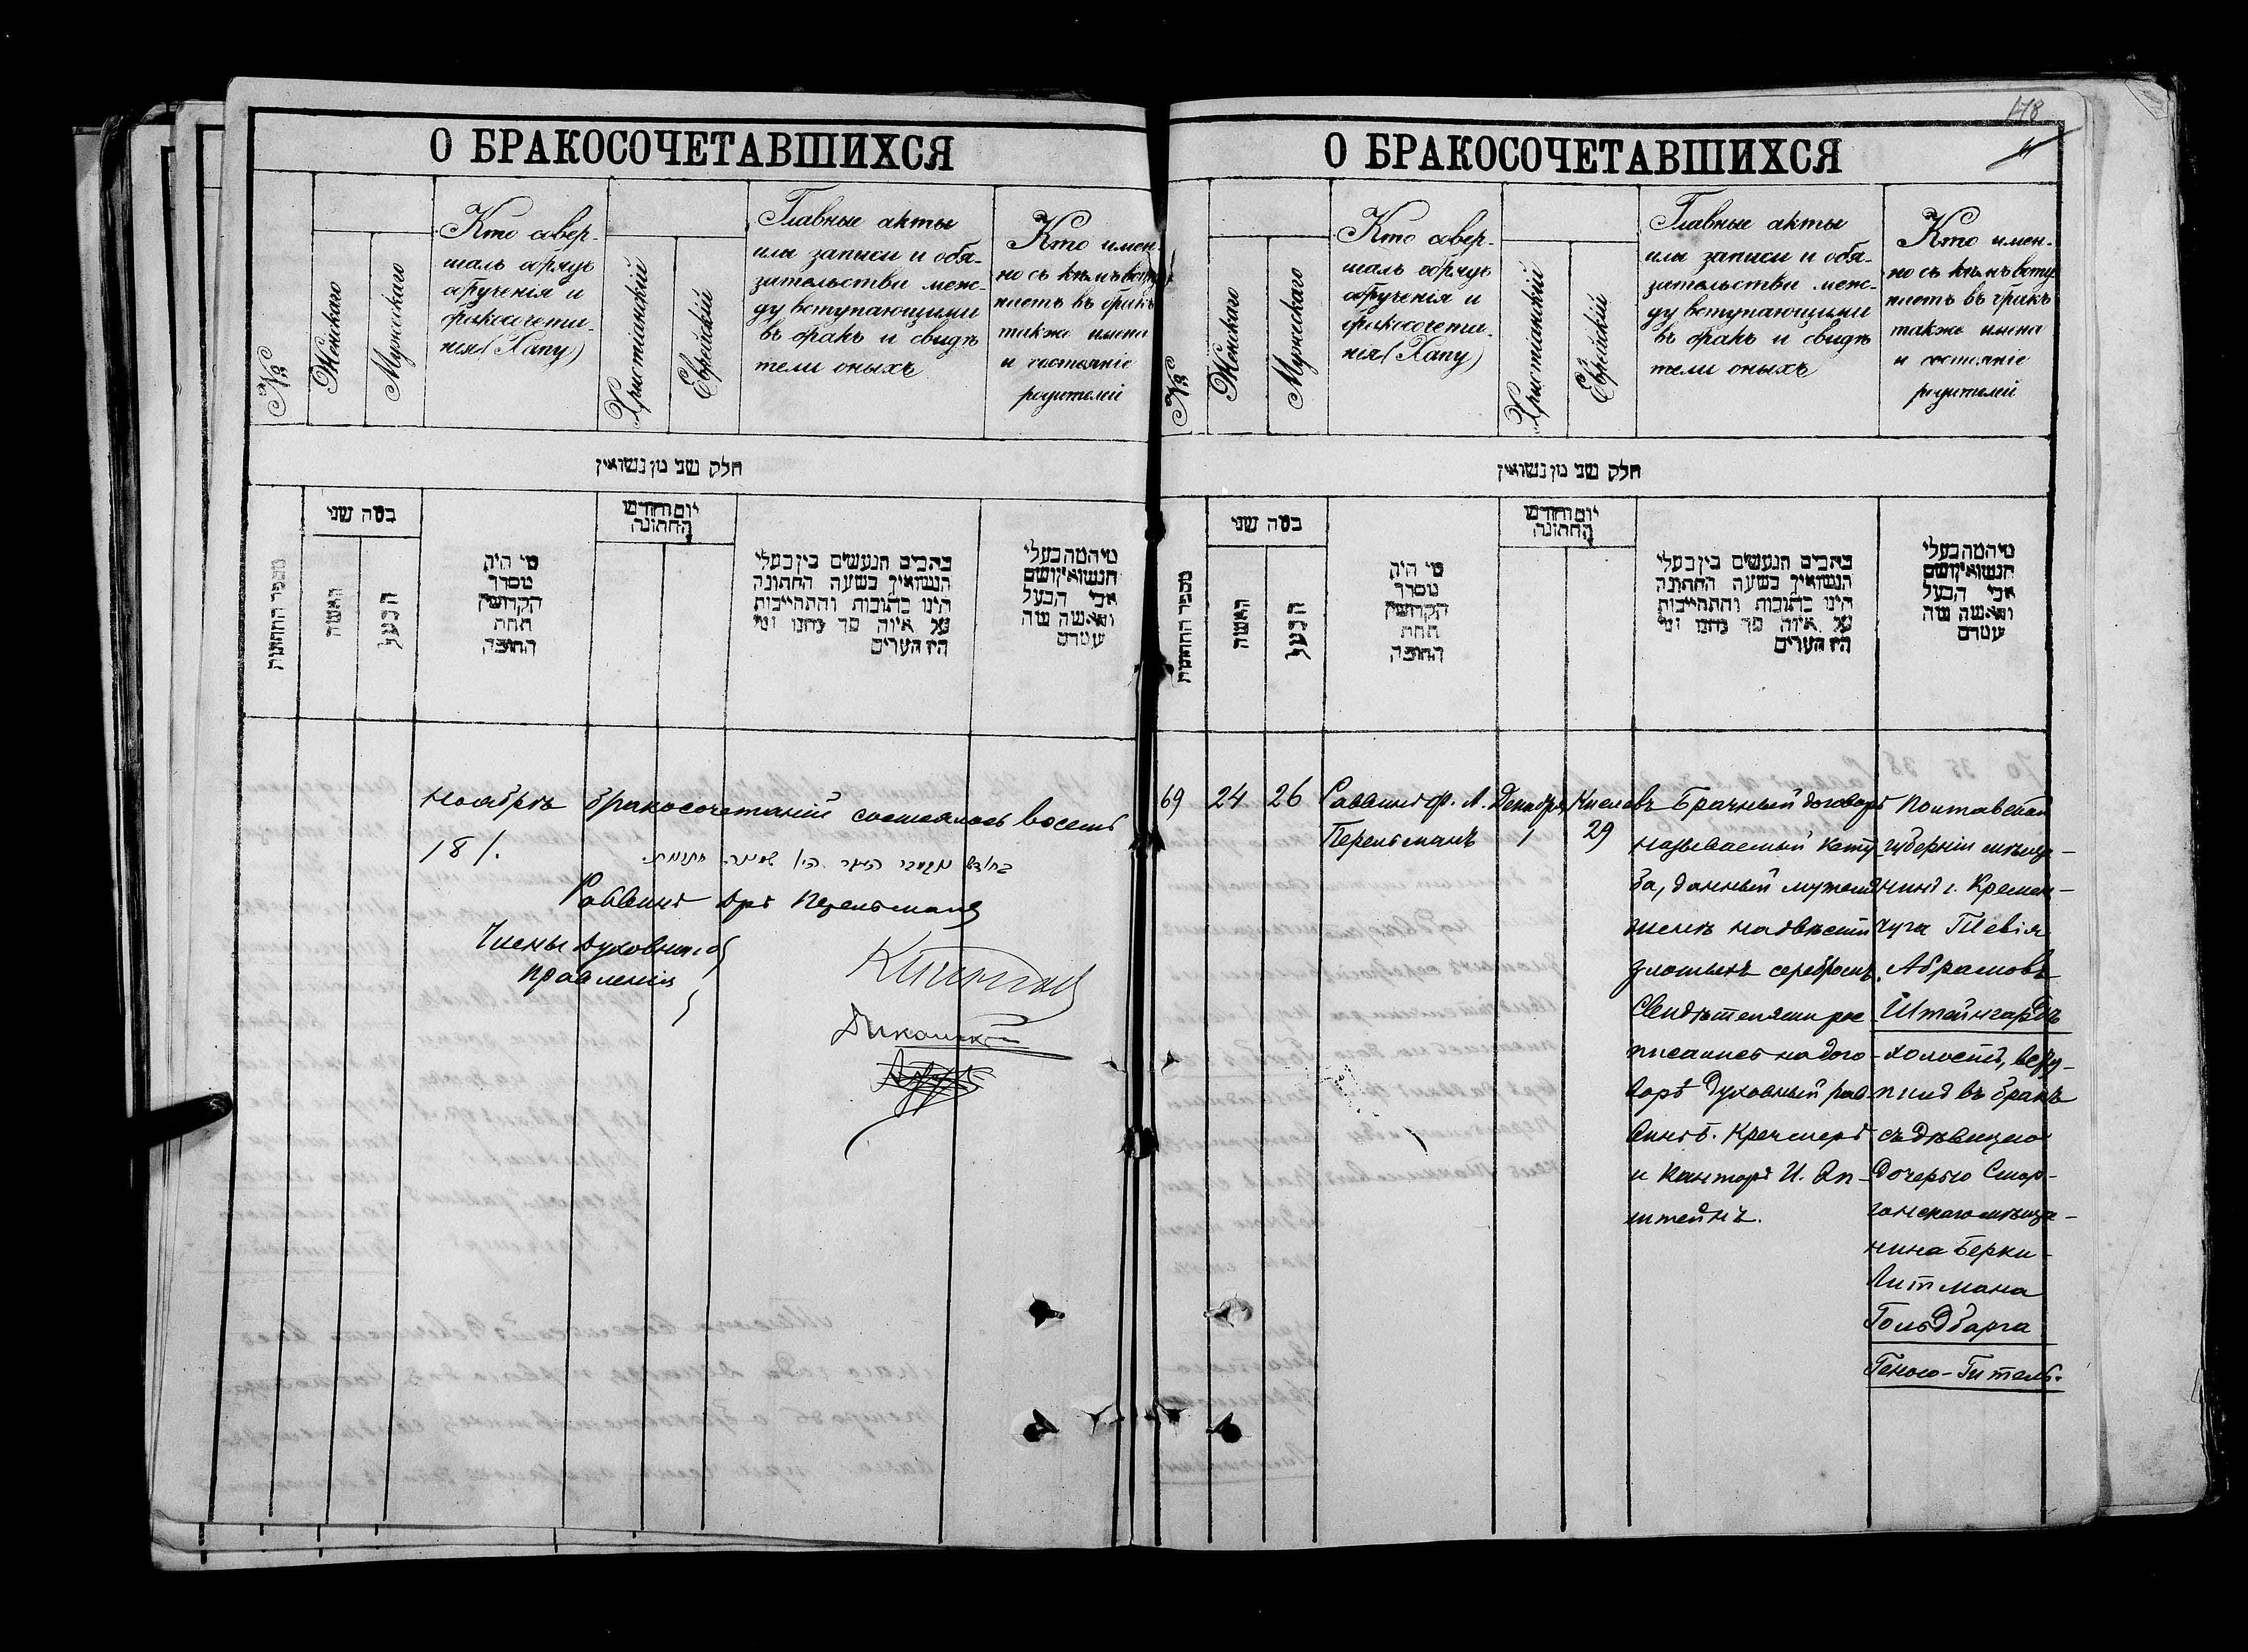 О БРАКОСОЧЕТАВШИХСЯ
№
Женскаго
Мужескаго
Кто совер-
шалъ обрядъ
обрученія и
бракосочета-
нія (Хапу)
Христіанскій
Еврейскій
Главные акты
или записи и обя-
зательства меж-
ду вступающими
въ бракъ и свидѣ
тели оныхъ
Кто имен-
но съ кѣмъ всту
паетъ въ бракъ
также имена
и состояніе
родителей
חלק שני מן נשואין
מספר החתונות
במה שני
האשה
הבעל
מי היה
מסדר
הקדושין
תחת
החופה
יום וחודש
החתונה
כתבים הנעשים בין בעלי
הנשואין בשעה החתונה
היינו כתובות והתחייבות
על איזה סך ומי
אבי הבעל
Ноябрѣ бракосочетаній состоялось восемь
/8/.
Раввинъ Дръ Перельманъ
Члены Духовнаго
Правленія
О БРАКОСОЧЕТАВШИХСЯ
178
№
Женскаго
Мужескаго
Кто совер-
шалъ обрядъ
обрученія и
бракосочета-
нія (Хапу)
Христіанскій
Еврейскій
Главные акты
или записи и обя-
зательства меж-
ду вступающими
въ бракъ и свидѣ
тели оныхъ
Кто имен-
но съ кѣмъ всту
паетъ въ бракъ
также имена
и состояніе
родителей
חלק שני מן נשואין
מספר החתונות
במה שני
האשה
הבעל
מי היה
מסדר
הקדושין
תחת
החופה
יום וחודש
החתונה
כתבים הנעשים בין בעלי
הנשואין בשעה החתונה
היינו כתובות והתחייבות
על איזה סך ומי
אבי הבעל
69 24 26
Раввинъ Ф. Л.
Перельманъ
Декабря
1
Кислевъ
29
Брачный договоръ
называемый Кету-
ба, данный мужемъ
женѣ на двѣсти
злотыхъ серебромъ.
Свидѣтелями рос-
писались на дого-
ворѣ Духовный рав-
винъ Б. Кречмеръ
и Канторъ И. Эп-
штейнъ.
Полтавской
губерніи мѣща-
нинъ г. Кремен-
чуга Тевія
Абрамовъ
Штейнгардъ
холостъ, всту-
пилъ въ бракъ
съ дѣвицею
дочерью Смор-
гонскаго мѣща-
нина Берки-
Литмана
Гольдбарга
Геною-Гитель.